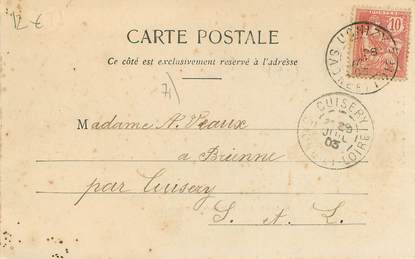 12 €
CARTE POSTALE
Ce côté est exclusivement réservé à l'adresse
71)
Madame A. Veaux
a Brienne
par Cuisery
S. et L.
10
CUISERY
29
JUIL
03
SAÔNE-ET-LOIRE